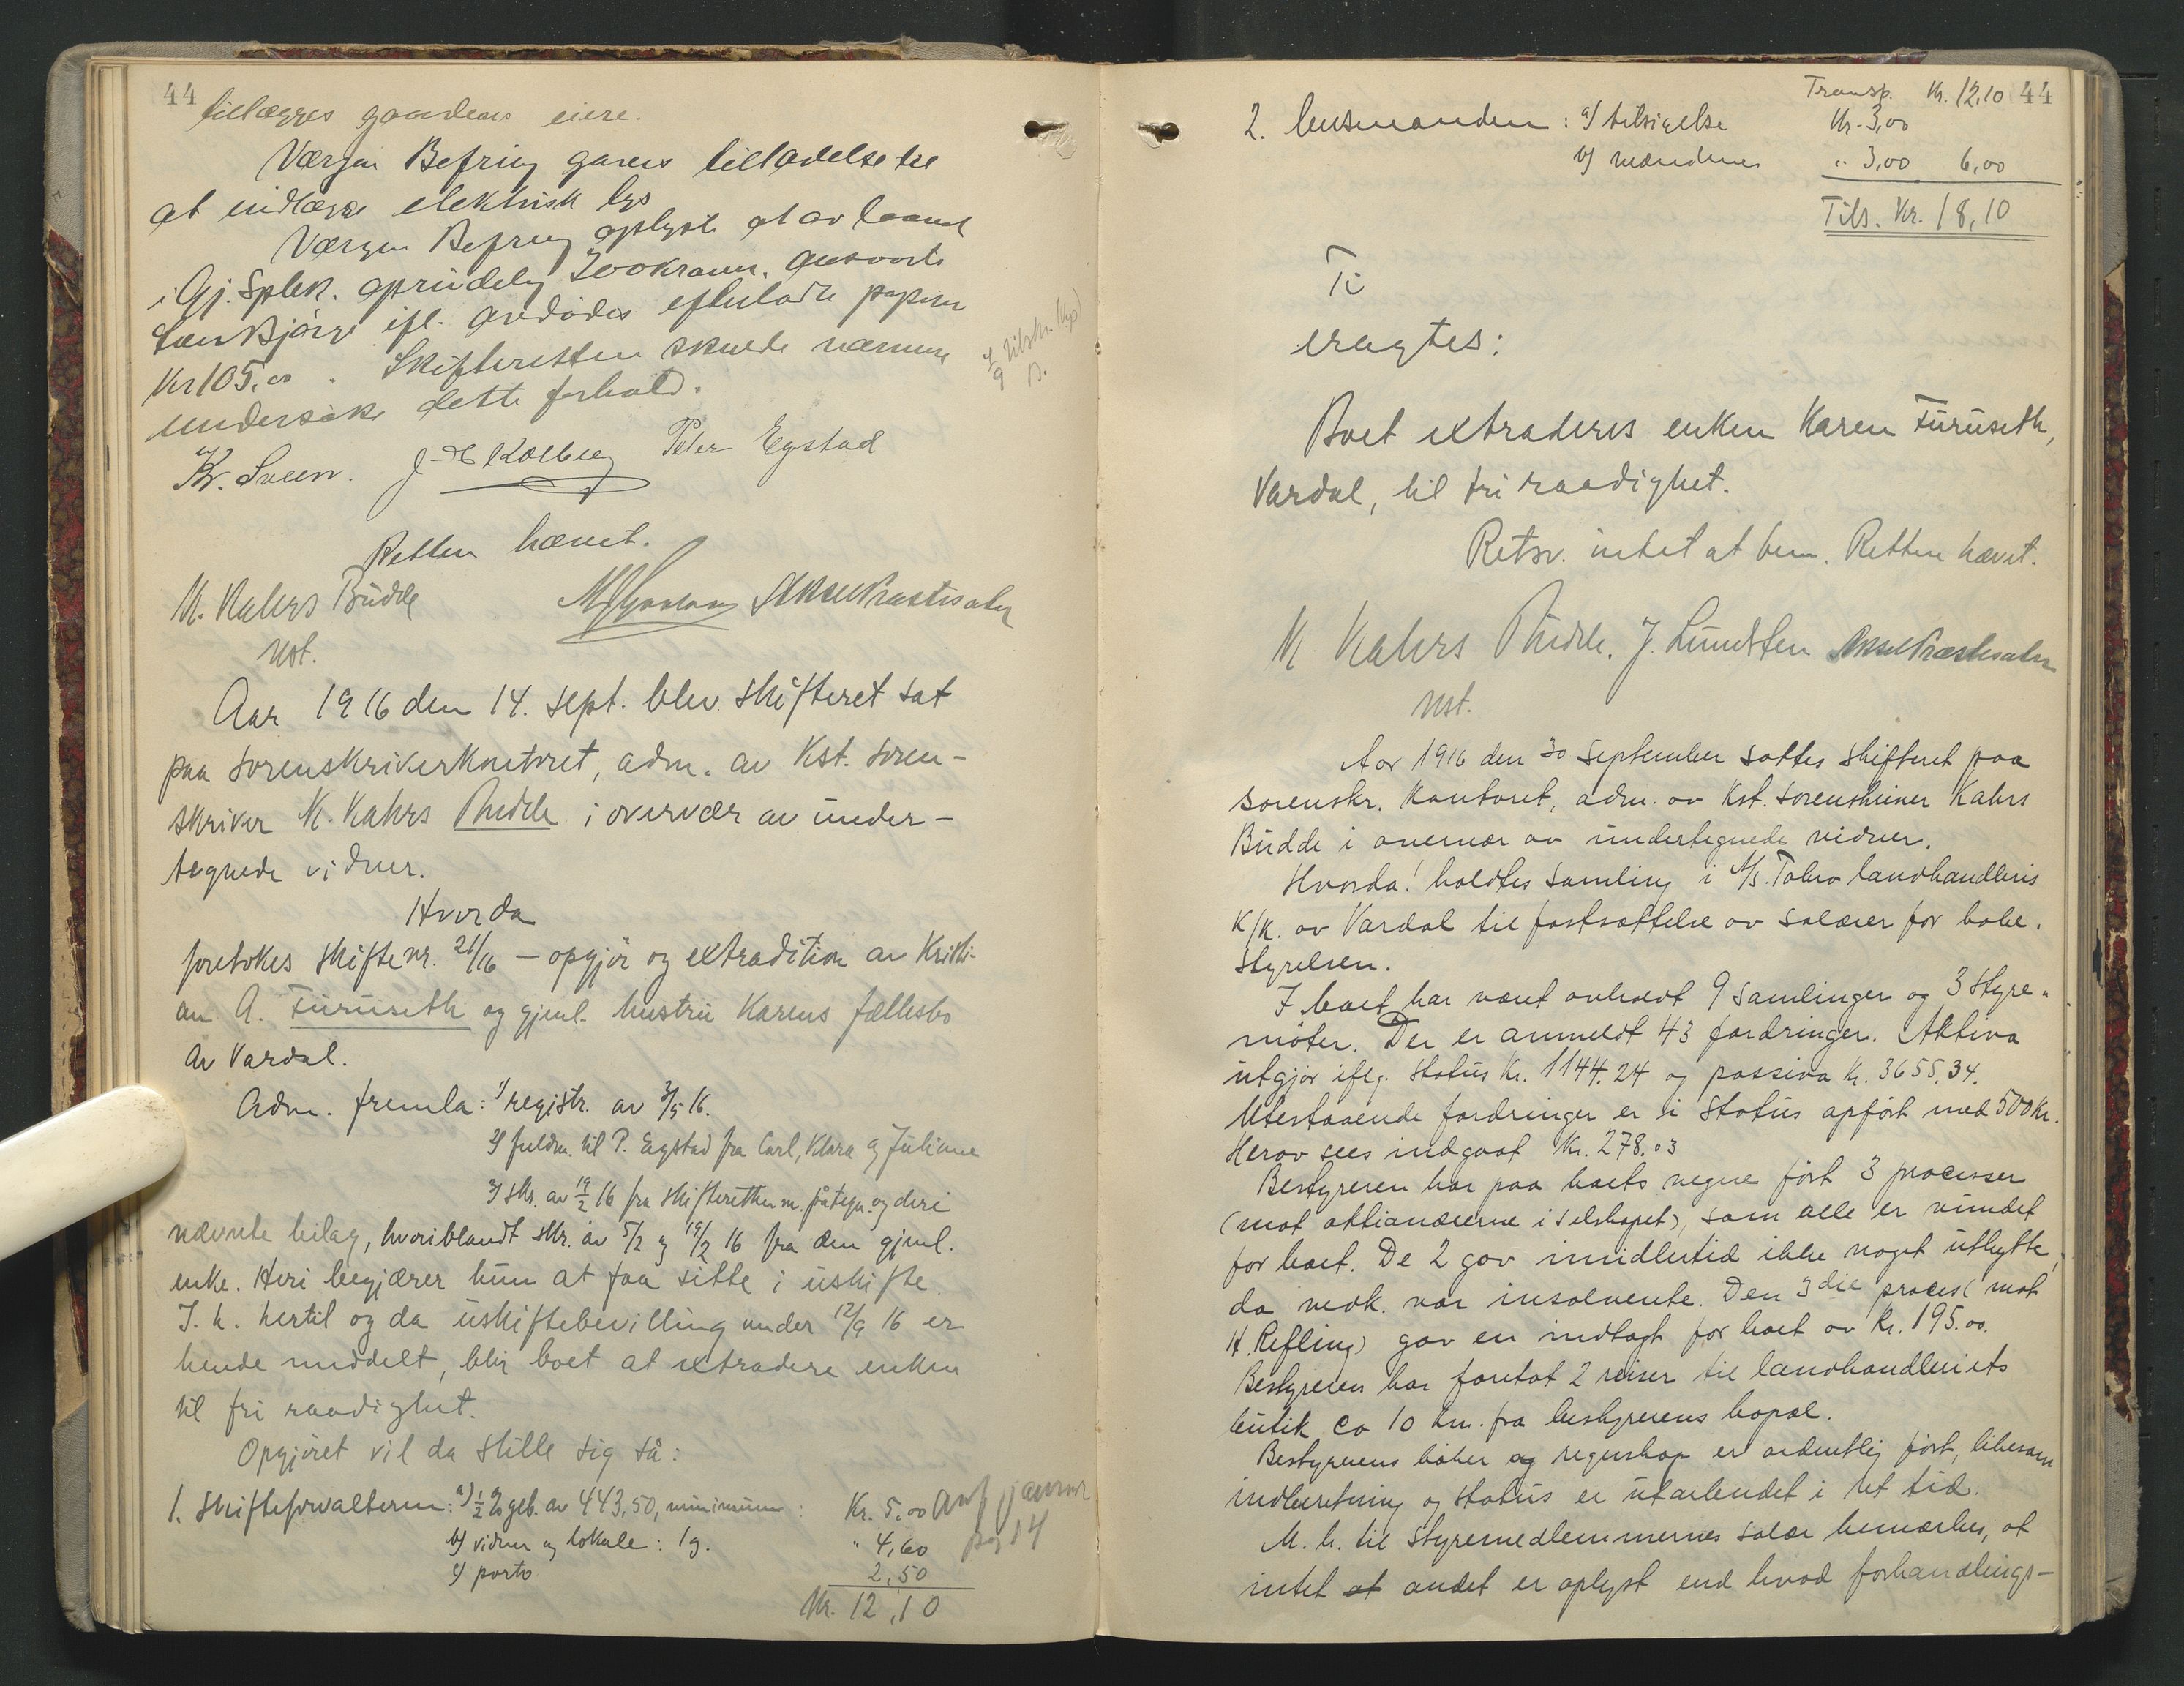 44
tillægges gaardens eiere.
Værgen Befring gaves tilladelse til
at indlægge elektrisk lys
Værgen Befring oplyste at av laanet
i Gj. Spbk. oprindelig 300 kroner.
ifl. avdødes efterladte papirer
Kr 105,00. Skifteretten skulde nærmere
undersøke dette forhold.
Kr. Sveen. Kolberg Peter Egstad
Retten hævet.
K. Kahrs Budde
kst.
Aar 1916 den 14. sept. blev skifteret sat
paa sorenskriverkontoret, adm. av kst. soren-
skriver K. Kahrs Budde i overvær av under-
tegnede vidner.
Hvorda
foretokes skifte nr. 21/16 – opgjör og extradition av Kristi-
an A. Furuseth og gjenl. hustru Karens fællesbo
av Vardal.
Adm. fremla: 1/ registr. av 3/5 16.
2/ fuldm. til P. Egstad fra Carl, Klara og Juliane
3/ skr. av 19/2 16 fra skifteretten m. påtegn. og deri
nævnte bilag, hvoriblandt skr. av 5/2 og 19/2 16 fra den gjenl.
enke. Heri begjærer hun at faa sitte i uskifte.
I. h. hertil og da uskiftebevilling under 12/9 16 er
hende meddelt, blir boet at extradere enken
til fri raadighet.
Opgjöret vil da stille sig så:
1. Skifteforvalteren: a) 1/2 % geb. av 443,50, minimum: Kr. 5,00
b) vidner og lokale: 1 g. " 4,60
c) porto 2,50
Kr. 12,10
pag 14
Transp. Kr. 12,10 44
2. lensmanden: a) tilsigelse Kr. 3,00
b) mændenes " 3,00 6,00
Tils. Kr. 18,10
Ti
eragtes:
Boet extraderes enken Karen Furuseth,
Vardal, til fri raadighet.
Retsv. intet at bem. Retten hævet.
K Kahrs Budde. J. Lundsten
kst.
Aar 1916 den 30 september sattes skifteret paa
sorenskr. kontoret, adm. av kst. sorenskriver Kahrs
Budde i overvær av undertegnede vidner.
Hvorda! holdtes samling i A/S. landhandleris
K/K. av Vardal til fastsættelse av salærer for bobe-
styrelsen.
I boet har været avholdt 9 samlinger og 3 styre-
møter. Der er anmeldt 43 fordringer. Aktiva
utgjør iflg. status kr. 1144.24 og passiva kr. 3655,34.
Utestaaende fordringer er i status opført med 500 kr.
Herav sees indgaat kr. 278.03
Bestyreren har paa boets vegne ført 3 processer
(mot aktionærerne i selskapet), som alle er vundet
for boet. De 2 gav imidlertid ikke noget utbytte,
da vedk. var insolvente. Den 3die proces (mot
H. Refling) gav en indtægt for boet av kr. 195.00.
Bestyreren har foretat 2 reiser til landhandleriets
butik ca 10 km. fra bestyrerens bopæl.
Bestyrerens bøker og regnskap er ordentlig ført, likesom
indberetning og status er utarbeidet i ret tid.
M. h. til styremedlemmernes salær bemærkes, at
intet at andet er oplyst end hvad forhandlings-